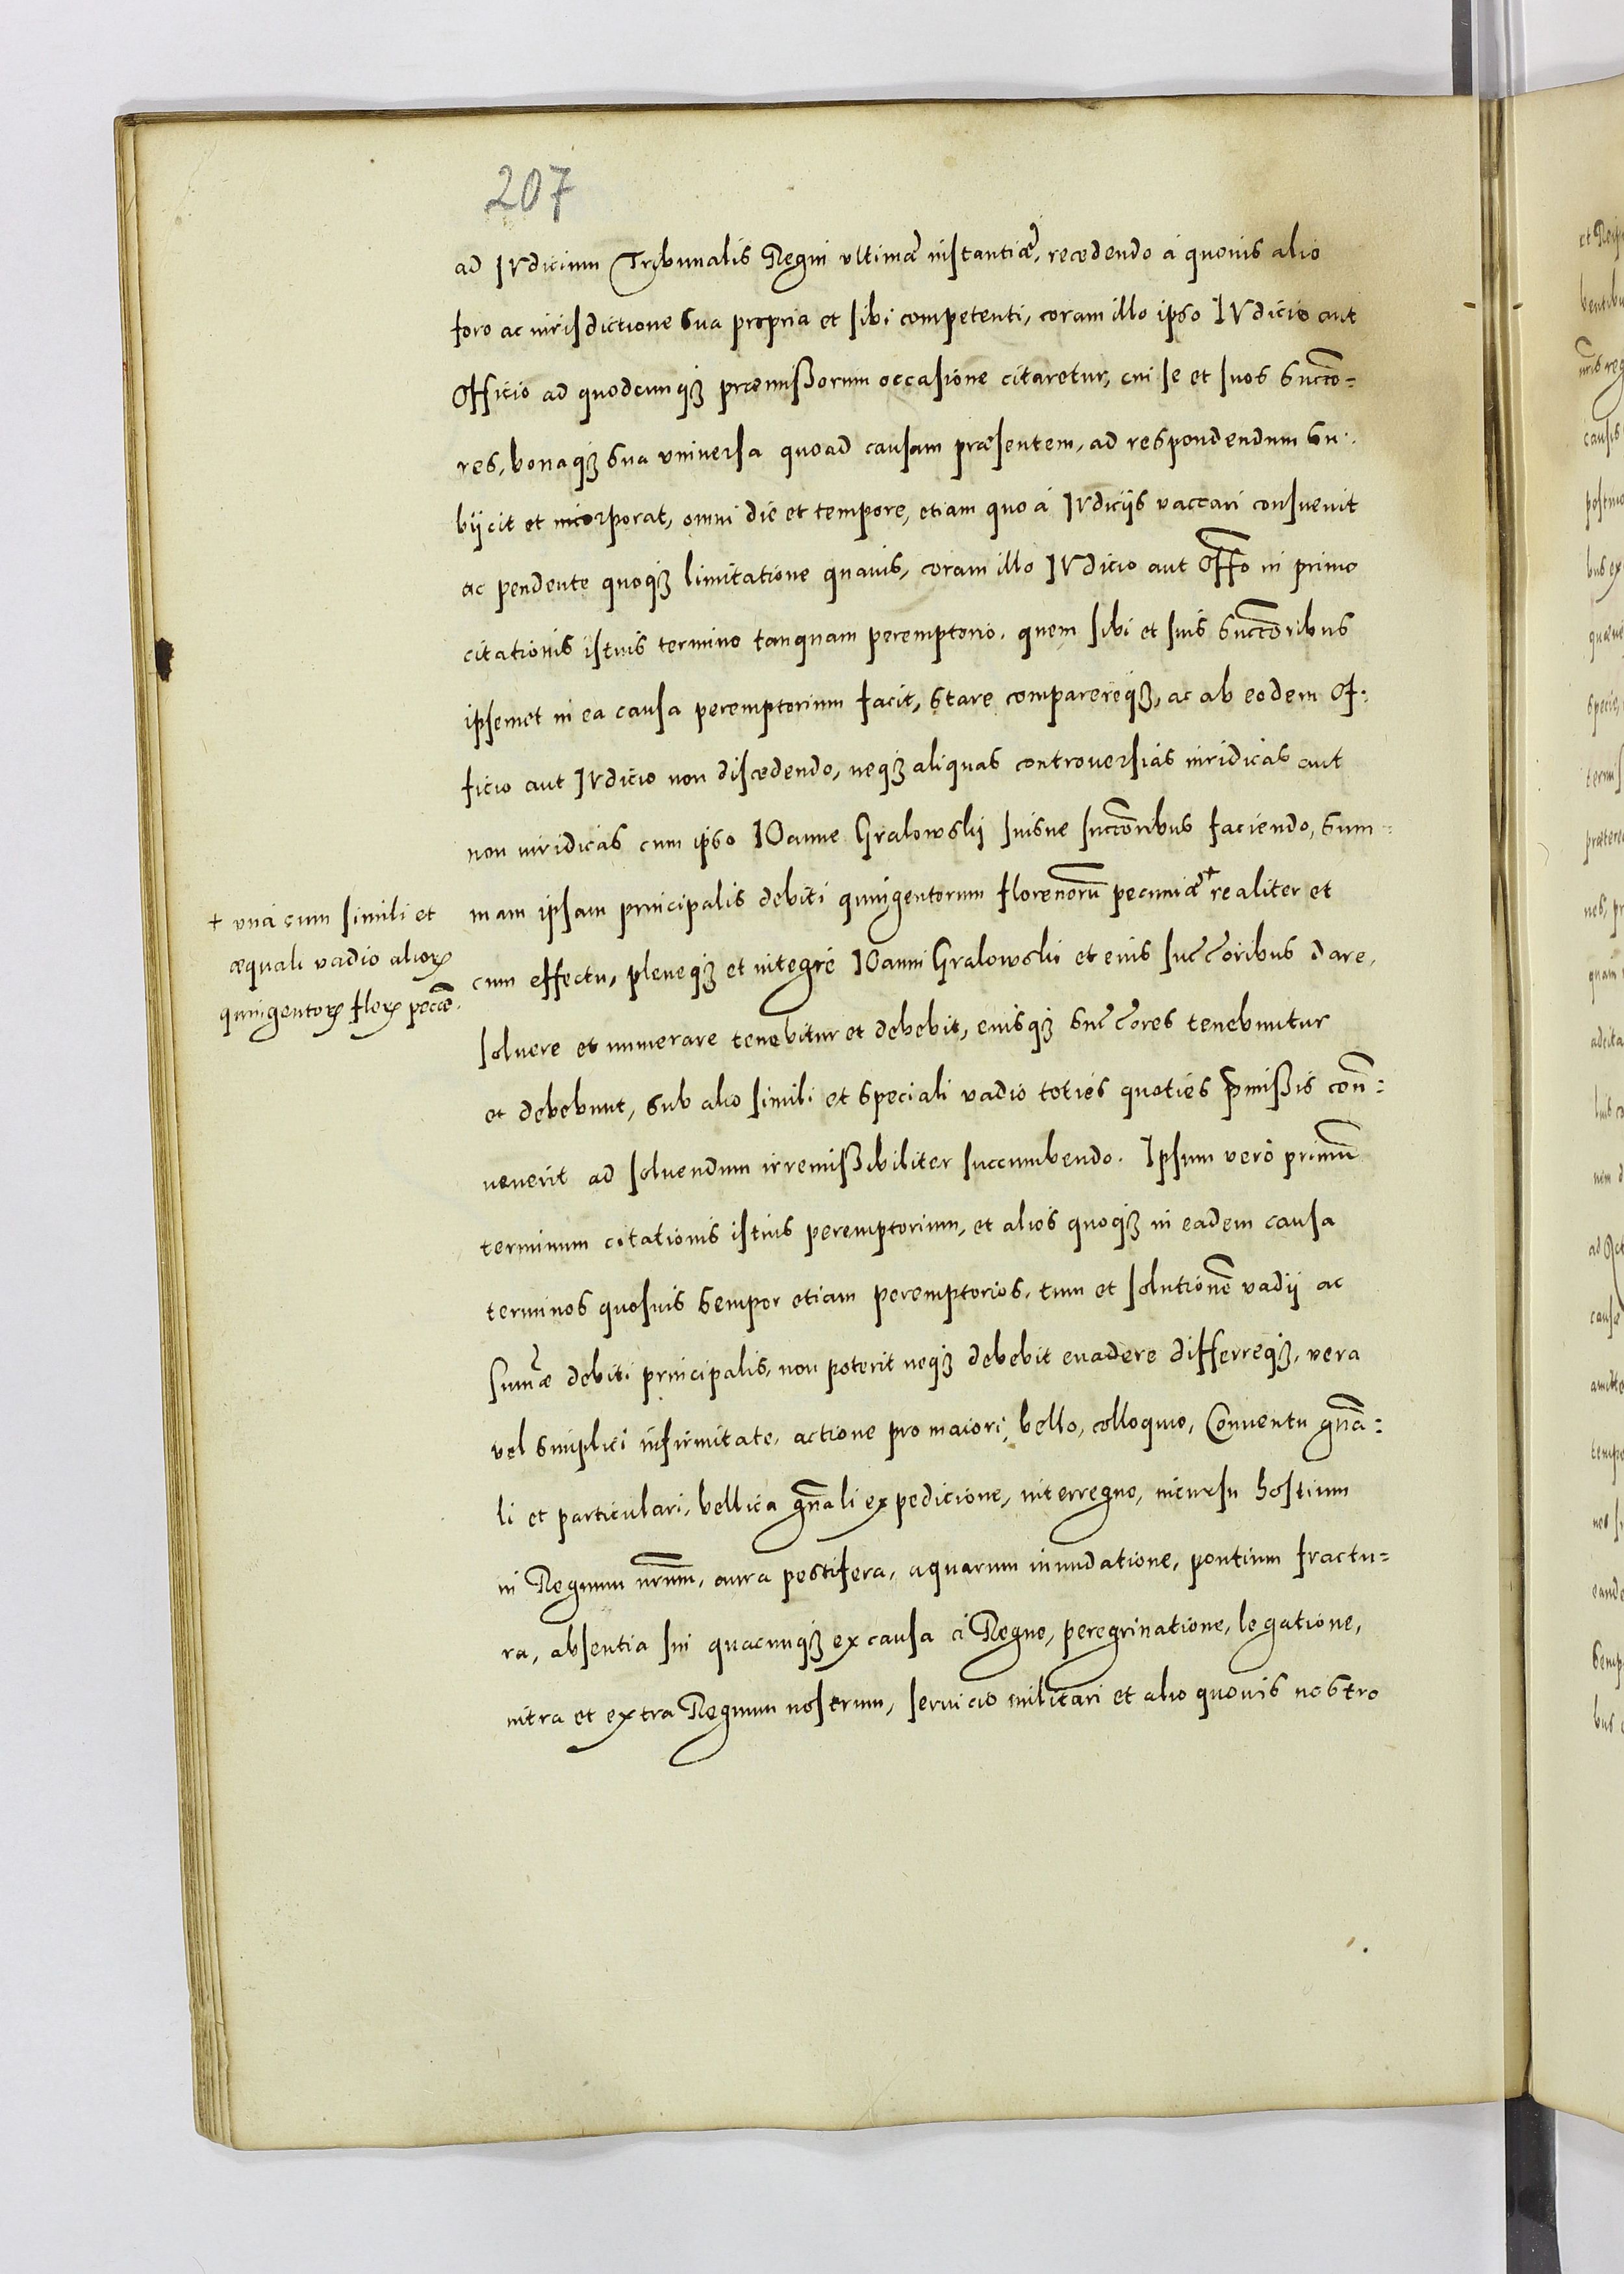 207
ad IVdicium Tribunalis Regni vltimæ instantiæ, recedendo à quouis alio
foro ac iurisdictione sua propria et sibi competenti, coram illo ipso IVdicio aut
Officio ad quodcunq₃ præmissorum occasione citaretur, cui se et suos succo=
res, bonaq₃ sua vniuersa quoad causam præsentem, ad respondendum su:
bijcit et incorporat, omni die et tempore, etiam quo à IVdicijs vaccari consueuit
ac pendente quoq₃ limitatione quauis, coram illo IVdicio aut Offo in primo
citationis istius termino tanquam peremptorio, quem sibi et suis succoribus
ipsemet in ea causa peremptorium facit, stare comparereq₃, ac ab eodem Of:
ficio aut IVdicio non discedendo, neq₃ aliquas controuersias iuridicas aut
non iuridicas cum ipso IOanne Gralowskij suisue succoribus faciendo, sum=
mam ipsam principalis debiti quingentorum florenorū pecuniæ + realiter et
+ vnà cum simili et
æquali vadio alioꝝ
quingentoꝝ floꝝ pecæ.
cum effectu, pleneq₃ et integrè IOanni Gralowski et eius succoribus dare,
soluere et numerare tenebitur et debebit, eiusq₃ succores tenebuntur
et debebunt, sub alio simili et speciali vadio toties quoties pmissis con:
uenerit ad soluendum irremissibiliter succumbendo. Ipsum verò primū
terminum citationis istius peremptorium, et alios quoq₃ in eadem causa
terminos quosuis semper etiam peremptorios, tum et solutionē vadij ac
Sumæ debiti principalis, non poterit neq₃ debebit euadere differreq₃, vera
vel simplici infirmitate, actione pro maiori, bello, colloquio, Conuentu gnā:
li et particulari, bellica gnāli expedicione, interregno, incursu hostium
in Regnum nrum, aura pestifera, aquarum inundatione, pontium fractu=
ra, absentia sui quacunq₃ ex causa à Regno, peregrinatione, legatione,
intra et extra Regnum nostrum, seruicio militari et alio quouis nostro